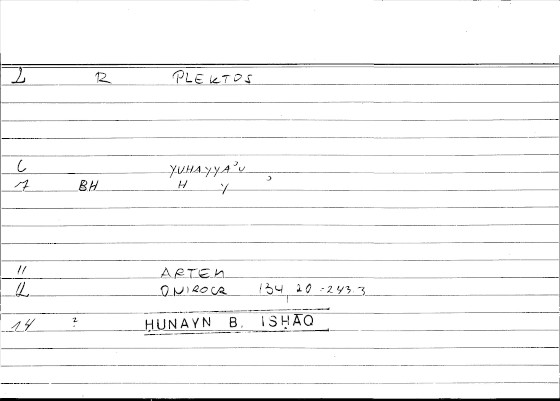 2 R PLEKTOS
6 YUHAYYA'U
7 BH H Y '
11 ARTEM
12 ONIROCR 134,20-243.3
14 ? ḤUNAYN B. ISḤĀQ